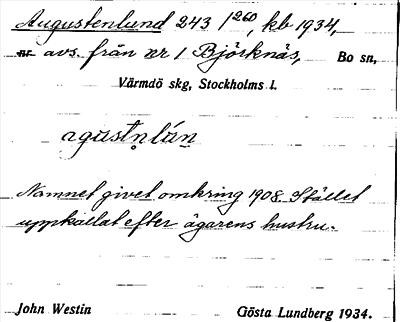 Augustenlund 243 1260, kb 1934,
nr avs. från nr 1 Björknäs, Bo sn,
Värmdö skg, Stockholms l.
agustn̥lún
Namnet givet omkring 1908. Stället
uppkallat efter ägarens hustru.
John Westin Gösta Lundberg 1934.